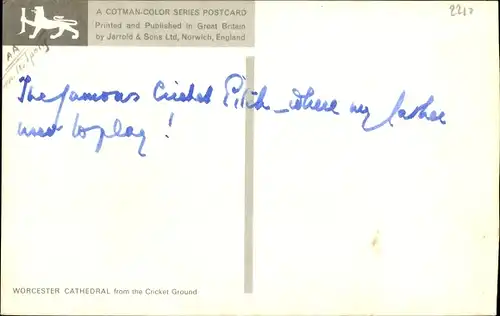 A COTMAN-COLOR SERIES POSTCARD
Printed and Published in Great Britain
by Jarrold & Sons Ltd, Norwich, England
AA
The famous Cricket Pitch - where my father
used to play!
WORCESTER CATHEDRAL from the Cricket Ground